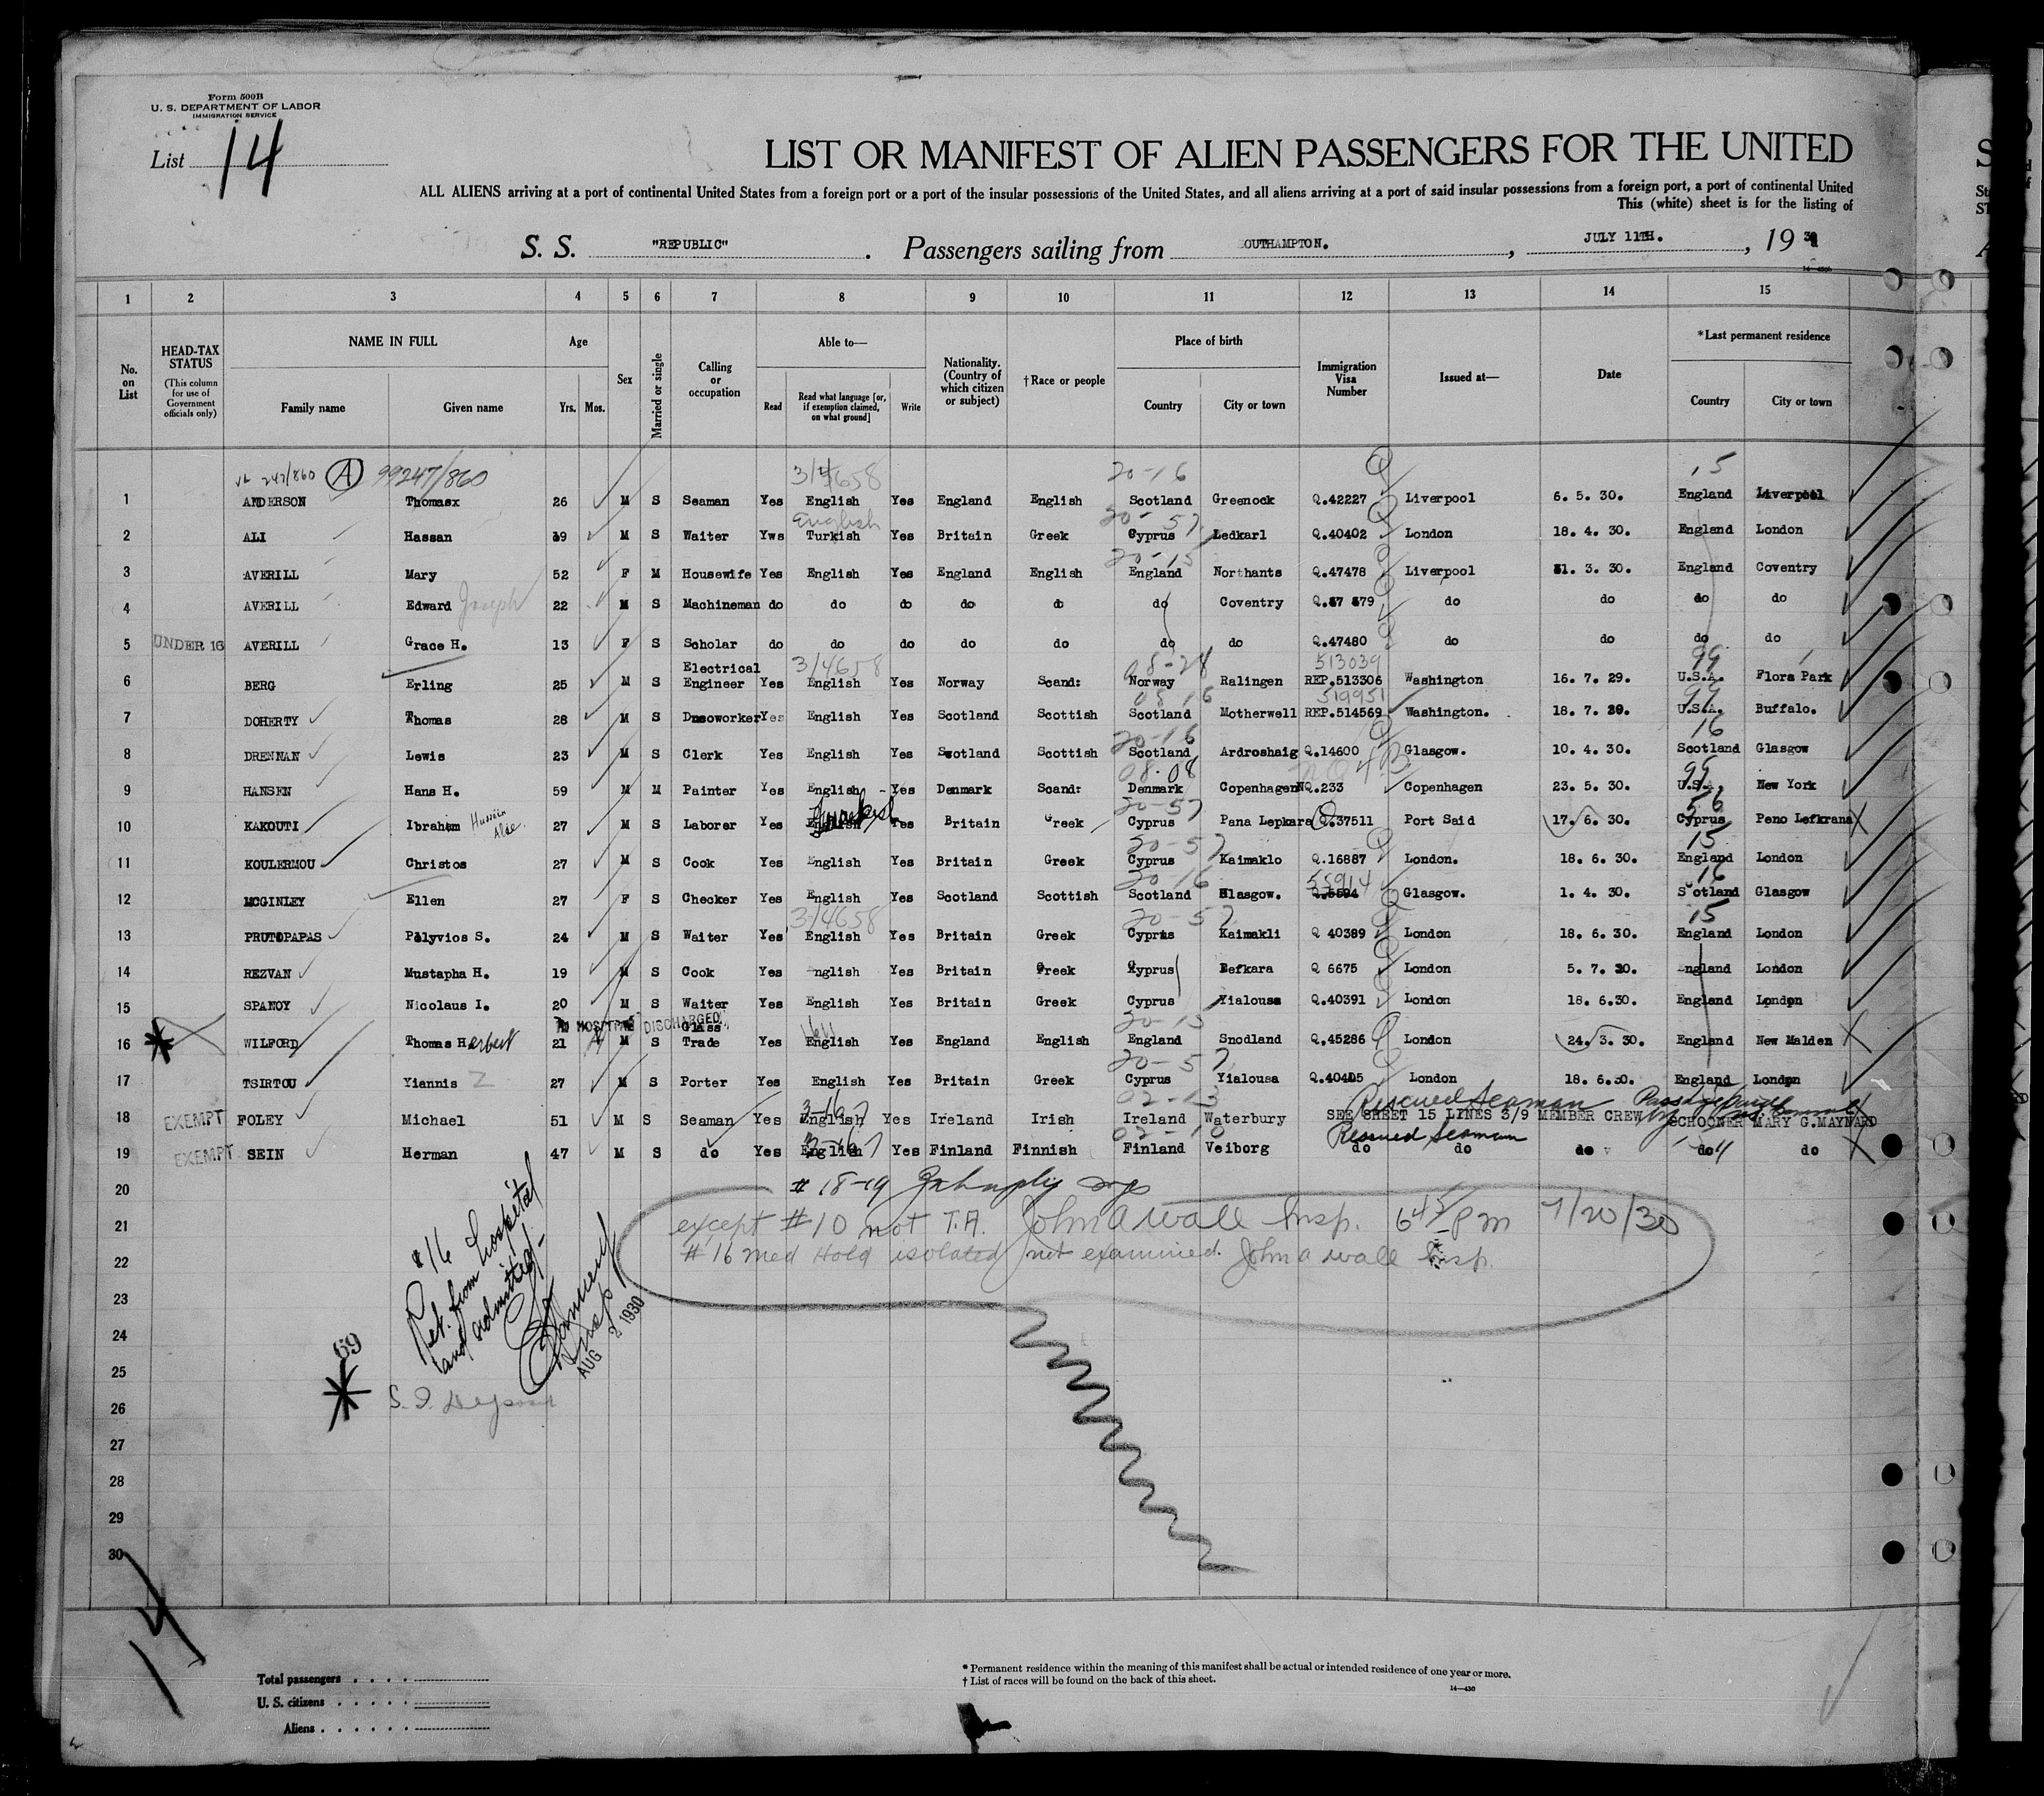 Form 500B
U. S. DEPARTMENT OF LABOR
IMMIGRATION SERVICE
List 14
LIST OR MANIFEST OF ALIEN PASSENGERS FOR THE UNITED
ALL ALIENS arriving at a port of continental United States from a foreign port or a port of the insular possessions of the United States, and all aliens arriving at a port of said insular possessions from a foreign port, a port of continental United
This (white) sheet is for the listing of
S. S. "REPUBLIC". Passengers sailing from OUTHAMPTON. , JULY 11TH. , 19 3
1 2 3 4 5 6 7 8 9 10 11 12 13 14 15
No. on List
HEAD-TAX STATUS (This column for use of Government officials only)
NAME IN FULL Family name Given name
Age Yrs. Mos.
Sex
Married or single
Calling or occupation
Able to— Read Read what language [or, if exemption claimed, on what ground] Write
Nationality. (Country of which citizen or subject)
†Race or people
Place of birth Country City or town
Immigration Visa Number
Issued at—
Date
*Last permanent residence Country City or town
242/860 A 99247/860 3/4658 20-16 Q 15
1 ANDERSON Thomasx 26 M S Seaman Yes English Yes England English Scotland Greenock Q.42227 Liverpool 6. 5. 30. England Liverpool
English 20-57
2 ALI Hassan 39 M S Waiter Yws Turkish Yes Britain Greek Cyprus Ledkarl Q.40402 London 18. 4. 30. England London
20-15
3 AVERILL Mary 52 F M Housewife Yes English Yes England English England Northants Q.47478 Liverpool 31. 3. 30. England Coventry
4 AVERILL Edward Joseph 22 M S Machineman do do do do do do Coventry Q.57 579 do do do do
5 UNDER 16 AVERILL Grace H. 13 F S Scholar do do do do do do do Q.47480 do do do do
3/4658 08-28 513039 99
6 BERG Erling 25 M S Electrical Engineer Yes English Yes Norway Scand: Norway Ralingen REP.513306 Washington 16. 7. 29. U.S.A. Flora Park
08 16 519951 99
7 DOHERTY Thomas 28 M S Dnsoworker Yes English Yes Scotland Scottish Scotland Motherwell REP.514569 Washington. 18. 7. 29. U.S.A. Buffalo.
20-16 16
8 DRENNAN Lewis 23 M S Clerk Yes English Yes Scotland Scottish Scotland Ardroshaig Q.14600 Glasgow. 10. 4. 30. Scotland Glasgow
08.08 NQ 4B 99
9 HANSEN Hans H. 59 M M Painter Yes English Yes Denmark Scand: Denmark Copenhagen NQ.233 Copenhagen 23. 5. 30. U.S.A. New York
20-57 56
10 KAKOUTI Ibrahim Hussein 27 M S Laborer Yes English Yes Britain Greek Cyprus Pana Lepkara Q.37511 Port Said 17. 6. 30. Cyprus Peno Lefkrana
20-57 15
11 KOULERMOU Christos 27 M S Cook Yes English Yes Britain Greek Cyprus Kaimaklo Q.16887 London. 18. 6. 30. England London
20-16 55914 16
12 MCGINLEY Ellen 27 F S Checker Yes English Yes Scotland Scottish Scotland Glasgow. Q.5594 Glasgow. 1. 4. 30. Scotland Glasgow
3/4658 20-57 15
13 PRUTOPAPAS Polyvios S. 24 M S Waiter Yes English Yes Britain Greek Cyprus Kaimakli Q 40389 London 18. 6. 30. England London
14 REZVAN Mustapha H. 19 M S Cook Yes nglish Yes Britain Greek Cyprus Lefkara Q 6675 London 5. 7. 30. England London
15 SPANOY Nicolaus I. 20 M S Waiter Yes English Yes Britain Greek Cyprus Yialousa Q.40391 London 18. 6.30. England London
IN HOSPITAL DISCHARGED 20-15
16 WILFORD Thomas Herbert 21 M S Glass Trade Yes English Yes England English England Snodland Q.45286 London 24. 3. 30. England New Malden
20-57
17 TSIRTOU Yiannis Z 27 M S Porter Yes English Yes Britain Greek Cyprus Yialousa Q.40405 London 18. 6.30. England London
3-167 02-13 Rescued Seaman
18 EXEMPT FOLEY Michael 51 M S Seaman Yes English Yes Ireland Irish Ireland Waterbury SEE SHEET 15 LINES 3/9 MEMBER CREW SCHOONER MARY G.MAYNARD
Rescued Seaman
19 EXEMPT SEIN Herman 47 M S do Yes English Yes Finland Finnish Finland Veiborg do do do do do
20 # 18-19
21 except #10 not T.A. John A Wall Insp. 6 45 Pm 7/20/30
22 #16 med Hold isolated not examined. John A Wall Insp.
23
24
25
26
27
28
29
30
#16
Ret. from hospital
and admitted
Insp
AUG 2 1930
69
S. I. Deposit
14
Total passengers
U. S. citizens
Aliens
* Permanent residence within the meaning of this manifest shall be actual or intended residence of one year or more.
† List of races will be found on the back of this sheet.
14—430